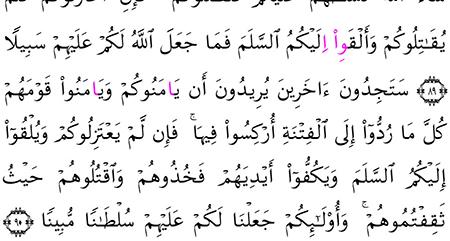 يُقَٰتِلُوكُمْ وَأَلْقَوِاْ اِلَيْكُمُ ٱلسَّلَمَ فَمَا جَعَلَ ٱللَّهُ لَكُمْ عَلَيْهِمْ سَبِيلًا
٨٩ سَتَجِدُونَ ءَاخَرِينَ يُرِيدُونَ أَن يَامَنُوكُمْ وَيَامَنُواْ قَوْمَهُمْ
كُلَّ مَا رُدُّوٓاْ إِلَى ٱلْفِتْنَةِ أُرْكِسُواْ فِيهَا ۚ فَإِن لَّمْ يَعْتَزِلُوكُمْ وَيُلْقُوٓاْ
إِلَيْكُمُ ٱلسَّلَمَ وَيَكُفُّوٓاْ أَيْدِيَهُمْ فَخُذُوهُمْ وَٱقْتُلُوهُمْ حَيْثُ
ثَقِفْتُمُوهُمْ ۚ وَأُوْلَٰٓئِكُمْ جَعَلْنَا لَكُمْ عَلَيْهِمْ سُلْطَٰنًا مُّبِينًا ٩٠